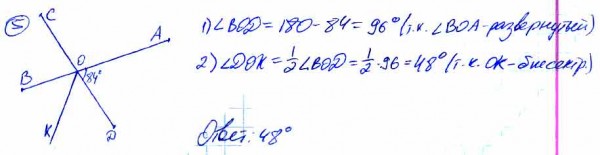 5
C
A
O
84°
B
K
D
1) ∠BOD = 180 - 84 = 96° (т.к. ∠BOA - развернутый)
2) ∠DOK = 1/2 ∠BOD = 1/2 · 96 = 48° (т.к. OK - биссектр.)
Ответ: 48°